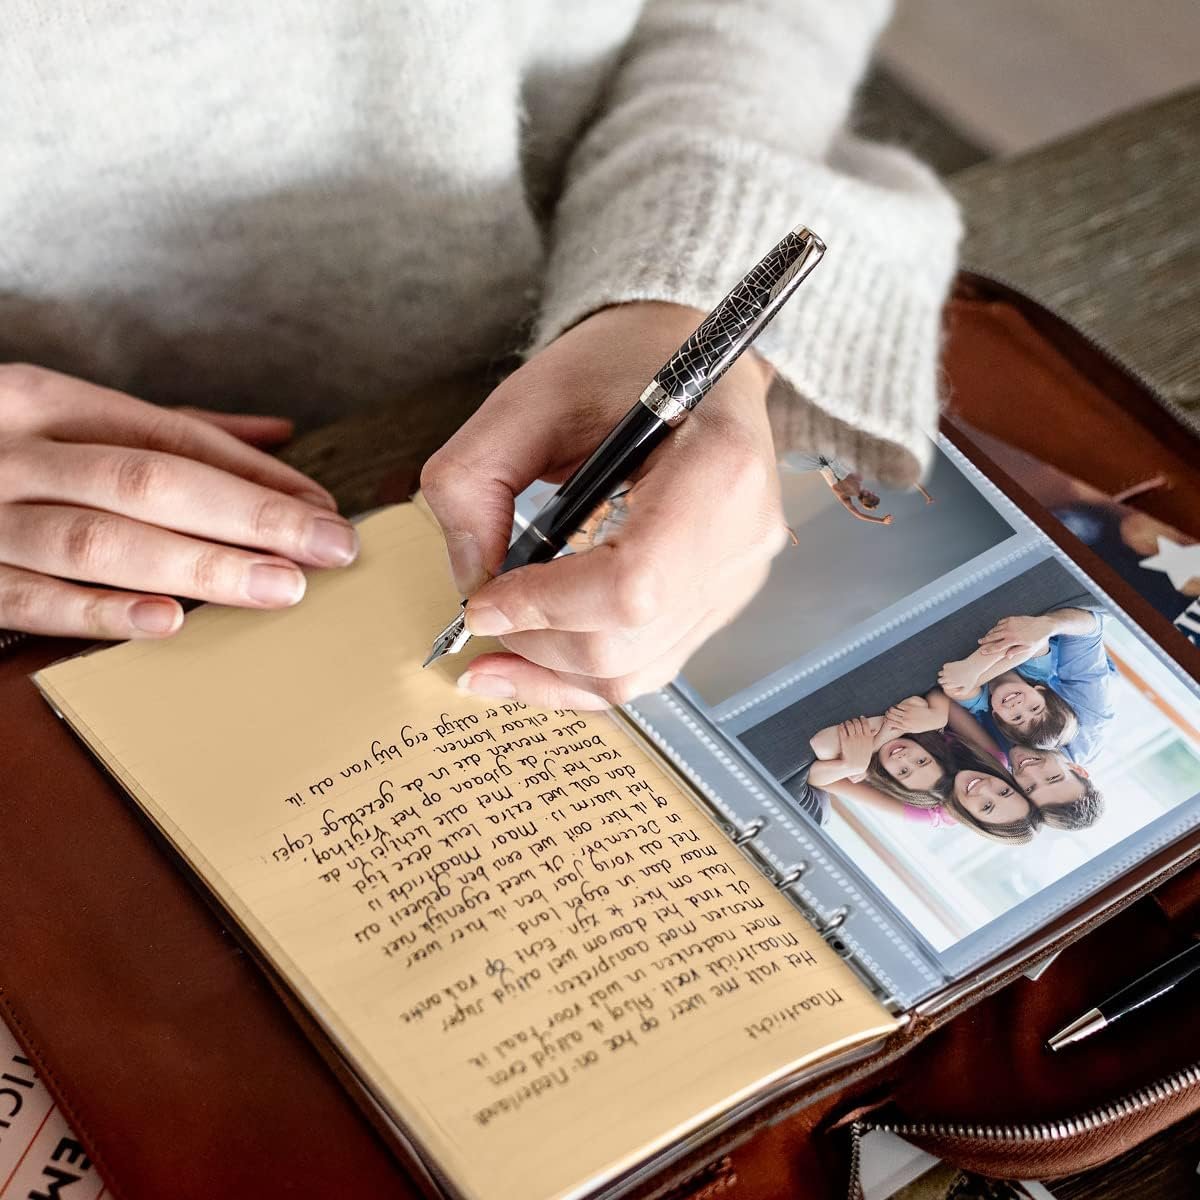 Maastricht
Het valt me weer op hoe on-Nederlands
Maastricht voelt. Alsof ik altijd even
moet nadenken in wat voor taal ik
mensen moet aanspreken.
Ik vind het daarom wel altijd super
leuk om hier te zijn. Echt op vakantie
maar dan in eigen land.
Net als vorig jaar ben ik hier weer
in December. Ik weet eigenlijk niet
of ik hier ooit wel eens ben geweest als
het warm is. Maar Maastricht is
dan ook wel extra leuk deze tijd
van het jaar. Met alle lichtjes in de
bomen, de ijsbaan op het Vrijthof,
alle mensen die in de gezellige cafés
elkaar komen.
er altijd erg blij van als ik